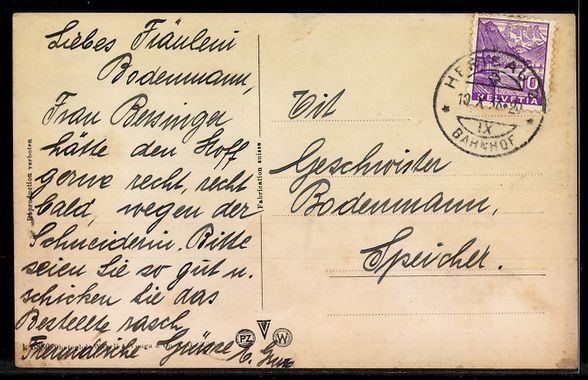 Liebes Fräulein
Bodenmann,
Frau Bessinger
hätte den Stoff
gerne recht, recht
bald, wegen der
Schneiderin. Bitte
seien Sie so gut u.
schicken Sie das
Bestellte rasch
Freundliche Grüsse
Tit
Geschwister
Bodenmann,
Speicher.
10
HELVETIA
HERISAU
19.X.36.20
IX
BAHNHOF
Reproduction verboten
Fabrication suisse
PZ
W